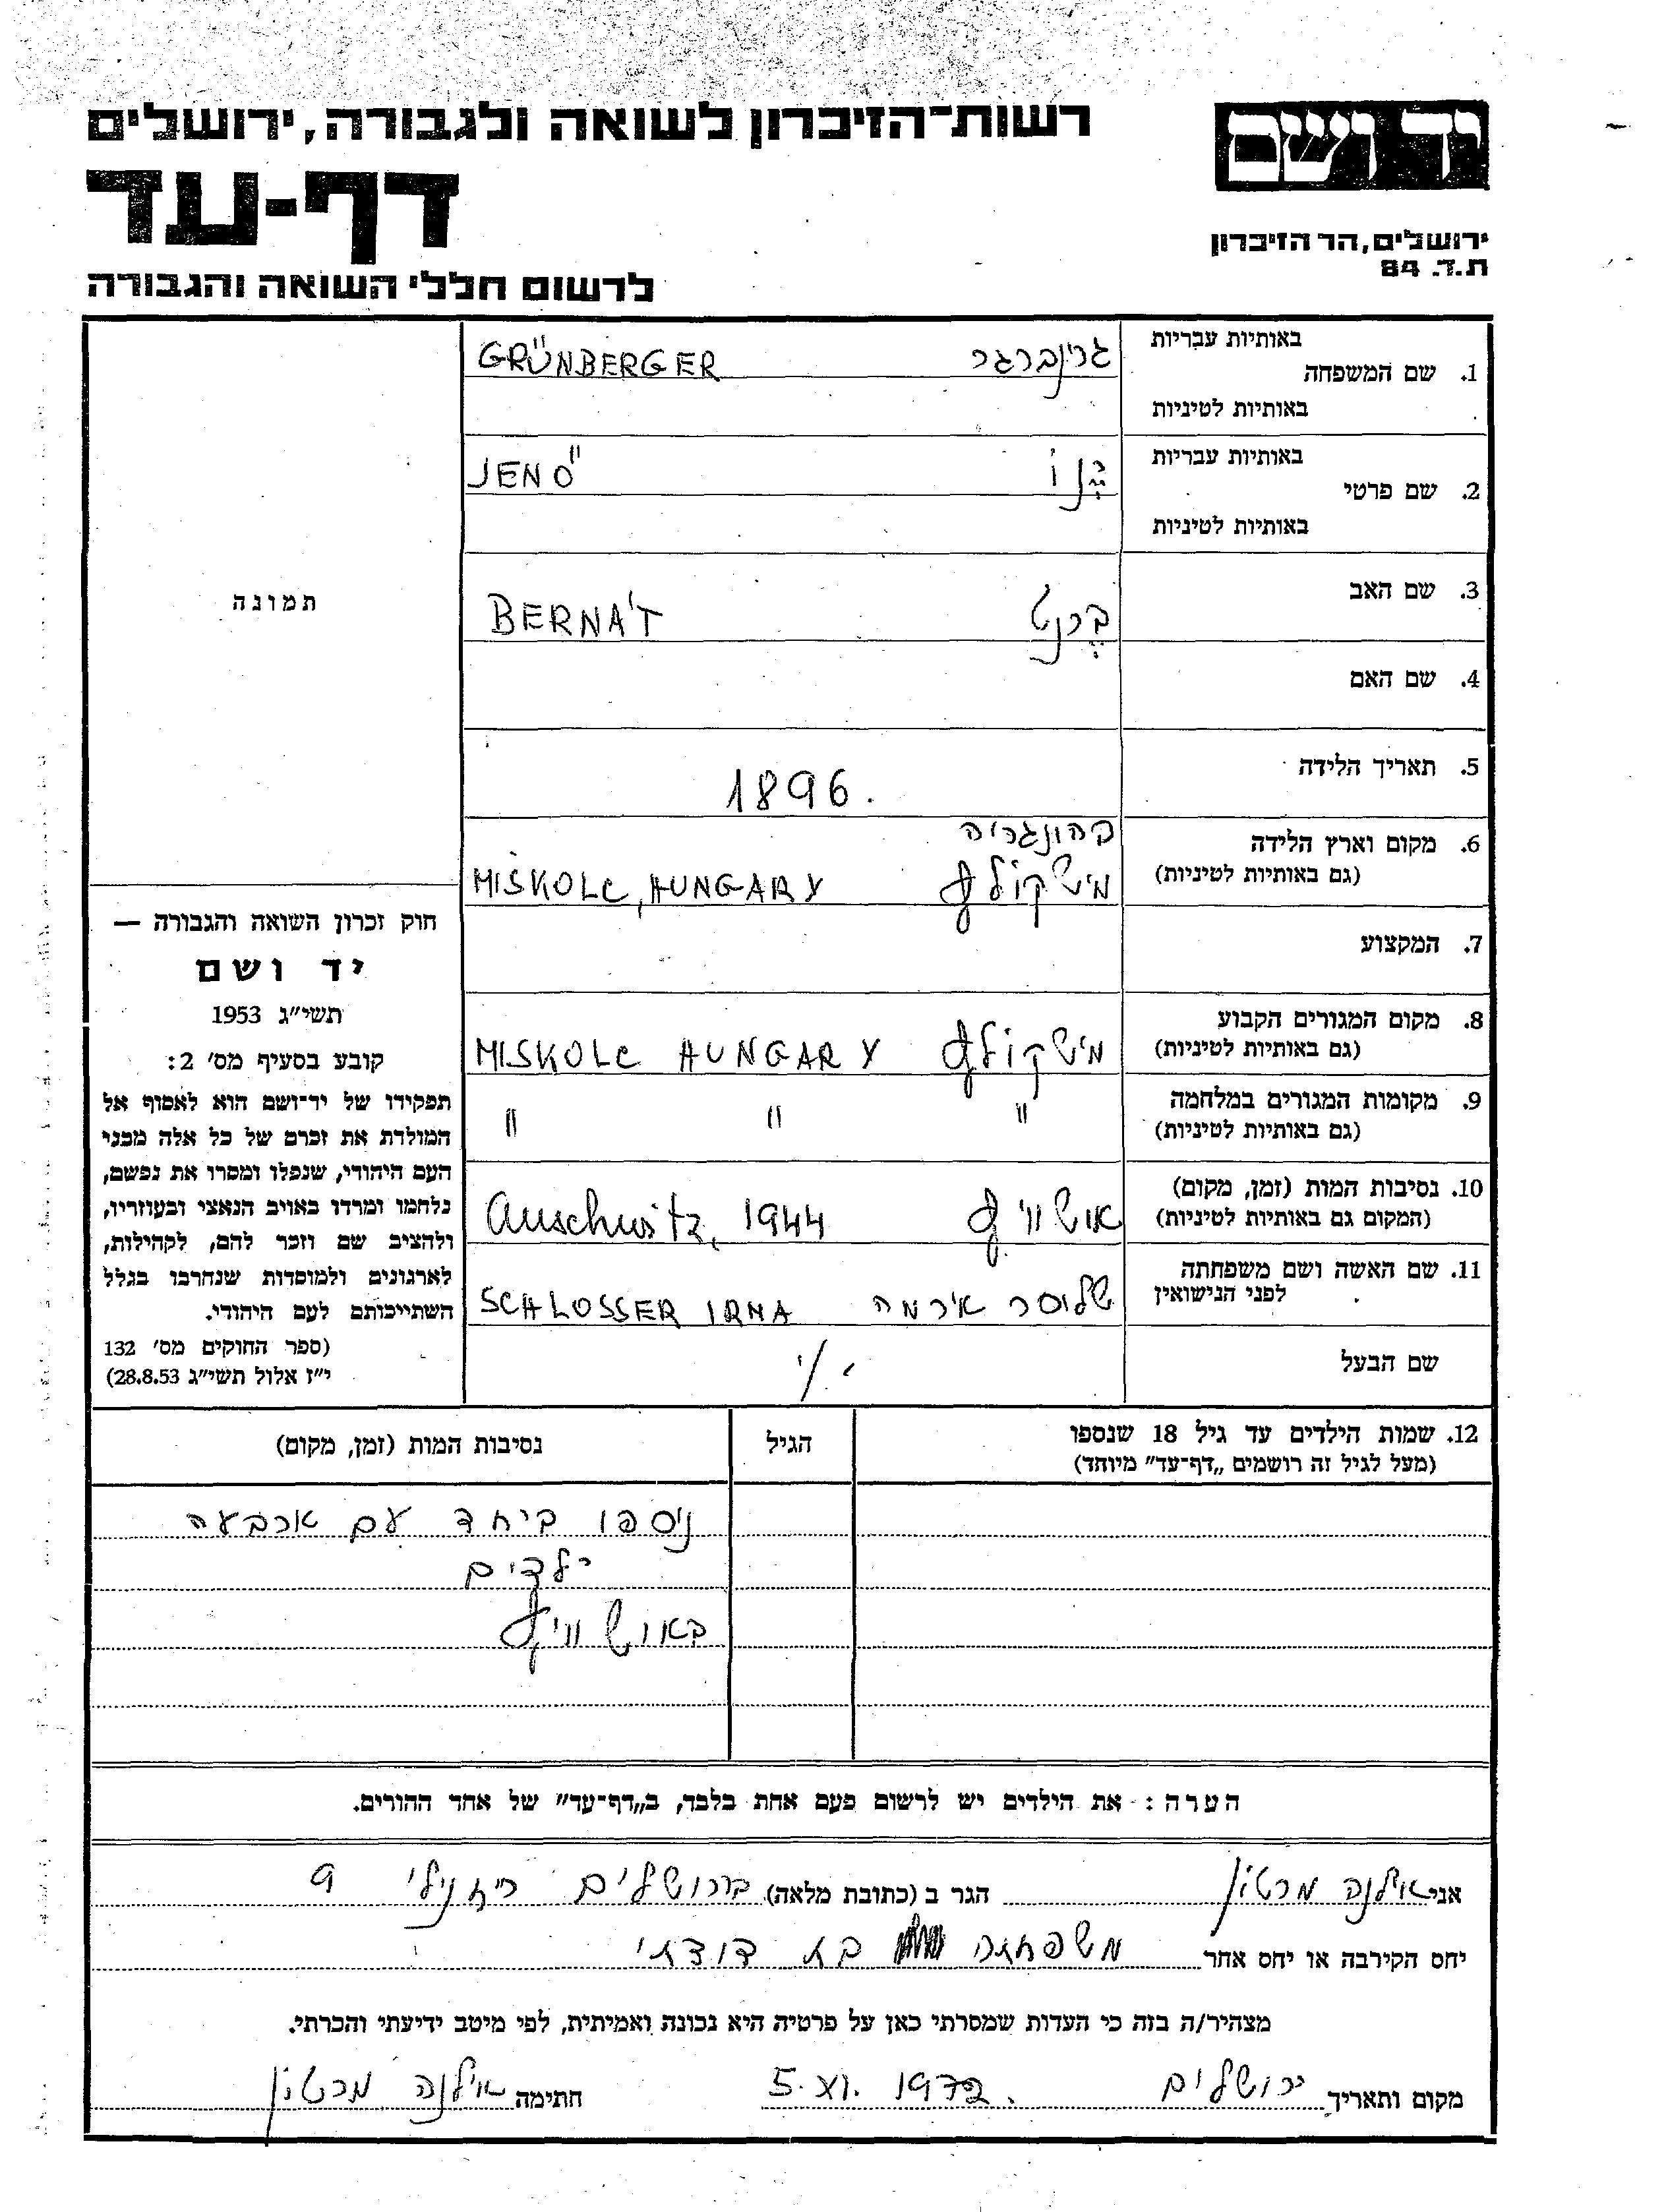 רשות־הזיכרון לשואה ולגבורה, ירושלים
יד ושם
דף-עד
ירושלים, הר הזיכרון
ת.ד. 84
לרשום חללי השואה והגבורה
באותיות עבריות
1. שם המשפחה
באותיות לטיניות
גרינברגר GRÜNBERGER
באותיות עבריות
2. שם פרטי
באותיות לטיניות
ינו JENŐ
3. שם האב
ברנט BERNÁT
4. שם האם
5. תאריך הלידה
1896.
6. מקום וארץ הלידה
(גם באותיות לטיניות)
בהונגריה
מישקולץ MISKOLC, HUNGARY
7. המקצוע
8. מקום המגורים הקבוע
(גם באותיות לטיניות)
מישקולץ MISKOLC HUNGARY
9. מקומות המגורים במלחמה
(גם באותיות לטיניות)
" " "
10. נסיבות המות (זמן, מקום)
(המקום גם באותיות לטיניות)
אושוויץ Auschwitz, 1944
11. שם האשה ושם משפחתה
לפני הנישואין
שלוסר אירמה SCHLOSSER IRMA
שם הבעל
./.
תמונה
חוק זכרון השואה והגבורה —
יד ושם
תשי״ג 1953
קובע בסעיף מס׳ 2:
תפקידו של יד־ושם הוא לאסוף אל
המולדת את זכרם של כל אלה מבני
העם היהודי, שנפלו ומסרו את נפשם,
נלחמו ומרדו באויב הנאצי ובעוזריו,
ולהציב שם וזכר להם, לקהילות,
לארגונים ולמוסדות שנחרבו בגלל
השתייכותם לעם היהודי.
(ספר החוקים מס׳ 132
י״ז אלול תשי״ג 28.8.53)
12. שמות הילדים עד גיל 18 שנספו
(מעל לגיל זה רושמים „דף־עד״ מיוחד)
הגיל
נסיבות המות (זמן, מקום)
ניספו ביחד עם ארבעה
ילדים
באושוויץ
הערה: את הילדים יש לרשום פעם אחת בלבד, ב„דף־עד״ של אחד ההורים.
אני אילנה מרטון הגר ב (כתובת מלאה) בירושלים 9
יחס הקירבה או יחס אחר משפחתה בת דודתי
מצהיר/ה בזה כי העדות שמסרתי כאן על פרטיה היא נכונה ואמיתית, לפי מיטב ידיעתי והכרתי.
מקום ותאריך ירושלים 5.XI.1972. חתימה אילנה מרטון